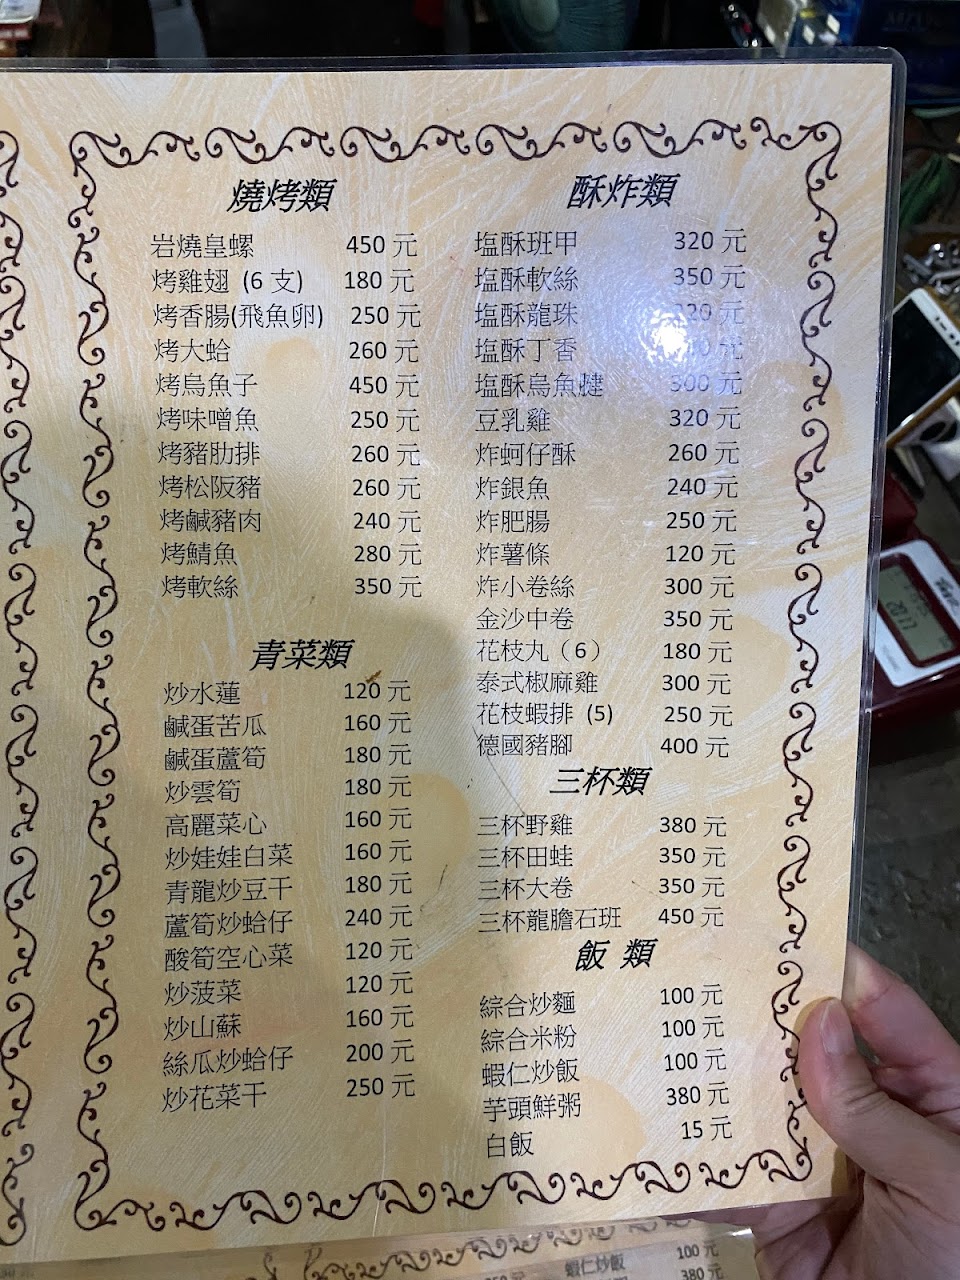 燒烤類
岩燒皇螺 450 元
烤雞翅 (6 支) 180 元
烤香腸(飛魚卵) 250 元
烤大蛤 260 元
烤烏魚子 450 元
烤味噌魚 250 元
烤豬肋排 260 元
烤松阪豬 260 元
烤鹹豬肉 240 元
烤鯖魚 280 元
烤軟絲 350 元
青菜類
炒水蓮 120 元
鹹蛋苦瓜 160 元
鹹蛋蘆筍 180 元
炒雲筍 180 元
高麗菜心 160 元
炒娃娃白菜 160 元
青龍炒豆干 180 元
蘆筍炒蛤仔 240 元
酸筍空心菜 120 元
炒菠菜 120 元
炒山蘇 160 元
絲瓜炒蛤仔 200 元
炒花菜干 250 元
酥炸類
塩酥班甲 320 元
塩酥軟絲 350 元
塩酥龍珠 元
塩酥丁香 元
塩酥烏魚腱 300 元
豆乳雞 320 元
炸蚵仔酥 260 元
炸銀魚 240 元
炸肥腸 250 元
炸薯條 120 元
炸小卷絲 300 元
金沙中卷 350 元
花枝丸（6） 180 元
泰式椒麻雞 300 元
花枝蝦排 (5) 250 元
德國豬腳 400 元
三杯類
三杯野雞 380 元
三杯田蛙 350 元
三杯大卷 350 元
三杯龍膽石班 450 元
飯 類
綜合炒麵 100 元
綜合米粉 100 元
蝦仁炒飯 100 元
芋頭鮮粥 380 元
白飯 15 元
蝦仁炒飯 100 元
380 元